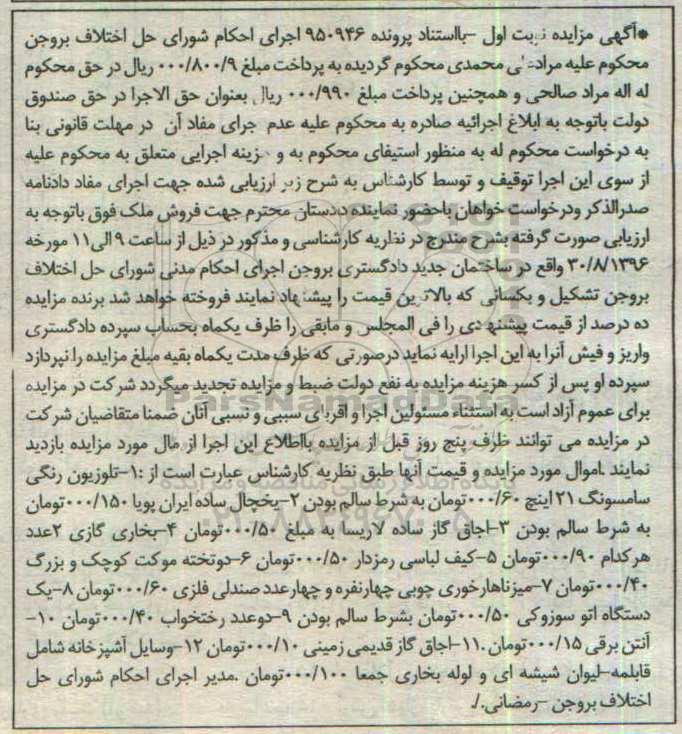 *آگهی مزایده نوبت اول -بااستناد پرونده ۹۵۰۹۴۶ اجرای احکام شورای حل اختلاف بروجن
محکوم علیه مرادعلی محمدی محکوم گردیده به پرداخت مبلغ ۰۰۰/۸۰۰/۹ ریال در حق محکوم
له اله مراد صالحی و همچنین پرداخت مبلغ ۰۰۰/۹۹۰ ریال بعنوان حق الاجرا در حق صندوق
دولت باتوجه به ابلاغ اجرائیه صادره به محکوم علیه عدم اجرای مفاد آن در مهلت قانونی بنا
به درخواست محکوم له به منظور استیفای محکوم به و هزینه اجرایی متعلق به محکوم علیه
از سوی این اجرا توقیف و توسط کارشناس به شرح زیر ارزیابی شده جهت اجرای مفاد دادنامه
صدرالذکر ودرخواست خواهان باحضور نماینده دادستان محترم جهت فروش ملک فوق باتوجه به
ارزیابی صورت گرفته بشرح مندرج در نظریه کارشناسی و مذکور در ذیل از ساعت ۹ الی۱۱ مورخه
۳۰/۸/۱۳۹۶ واقع در ساختمان جدید دادگستری بروجن اجرای احکام مدنی شورای حل اختلاف
بروجن تشکیل و بکسانی که بالاترین قیمت را پیشنهاد نمایند فروخته خواهد شد برنده مزایده
ده درصد از قیمت پیشنهادی را فی المجلس و مابقی را ظرف یکماه بحساب سپرده دادگستری
واریز و فیش آنرا به این اجرا ارایه نماید درصورتی که ظرف مدت یکماه بقیه مبلغ مزایده را نپردازد
سپرده او پس از کسر هزینه مزایده به نفع دولت ضبط و مزایده تجدید میگردد شرکت در مزایده
برای عموم آزاد است به استثناء مسئولین اجرا و اقربای سببی و نسبی آنان ضمنا متقاضیان شرکت
در مزایده می توانند ظرف پنج روز قبل از مزایده بااطلاع این اجرا از مال مورد مزایده بازدید
نمایند .اموال مورد مزایده و قیمت آنها طبق نظریه کارشناس عبارت است از :۱-تلوزیون رنگی
سامسونگ ۲۱ اینچ ۰۰۰/۶۰تومان به شرط سالم بودن ۲-یخچال ساده ایران پویا ۰۰۰/۱۵۰تومان
به شرط سالم بودن ۳-اجاق گاز ساده لاریسا به مبلغ ۰۰۰/۵۰تومان ۴-بخاری گازی ۲عدد
هرکدام ۰۰۰/۹۰تومان ۵-کیف لباسی رمزدار ۰۰۰/۵۰تومان ۶-دوتخته موکت کوچک و بزرگ
۰۰۰/۴۰تومان ۷-میزناهارخوری چوبی چهارنفره و چهارعدد صندلی فلزی ۰۰۰/۶۰تومان ۸-یک
دستگاه اتو سوزوکی ۰۰۰/۵۰تومان بشرط سالم بودن ۹-دوعدد رختخواب ۰۰۰/۴۰تومان ۱۰-
آنتن برقی ۰۰۰/۱۵تومان .۱۱-اجاق گاز قدیمی زمینی ۰۰۰/۱۰تومان ۱۲-وسایل آشپزخانه شامل
قابلمه-لیوان شیشه ای و لوله بخاری جمعا ۰۰۰/۱۰۰تومان .مدیر اجرای احکام شورای حل
اختلاف بروجن -رمضانی./.
ParsNamadData